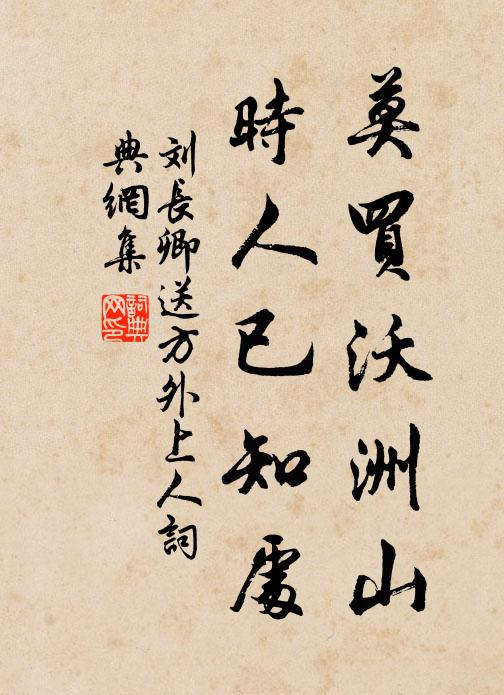 莫買沃洲山
時人已知處
刘長卿送方外上人詞
典網集
詞典
网印